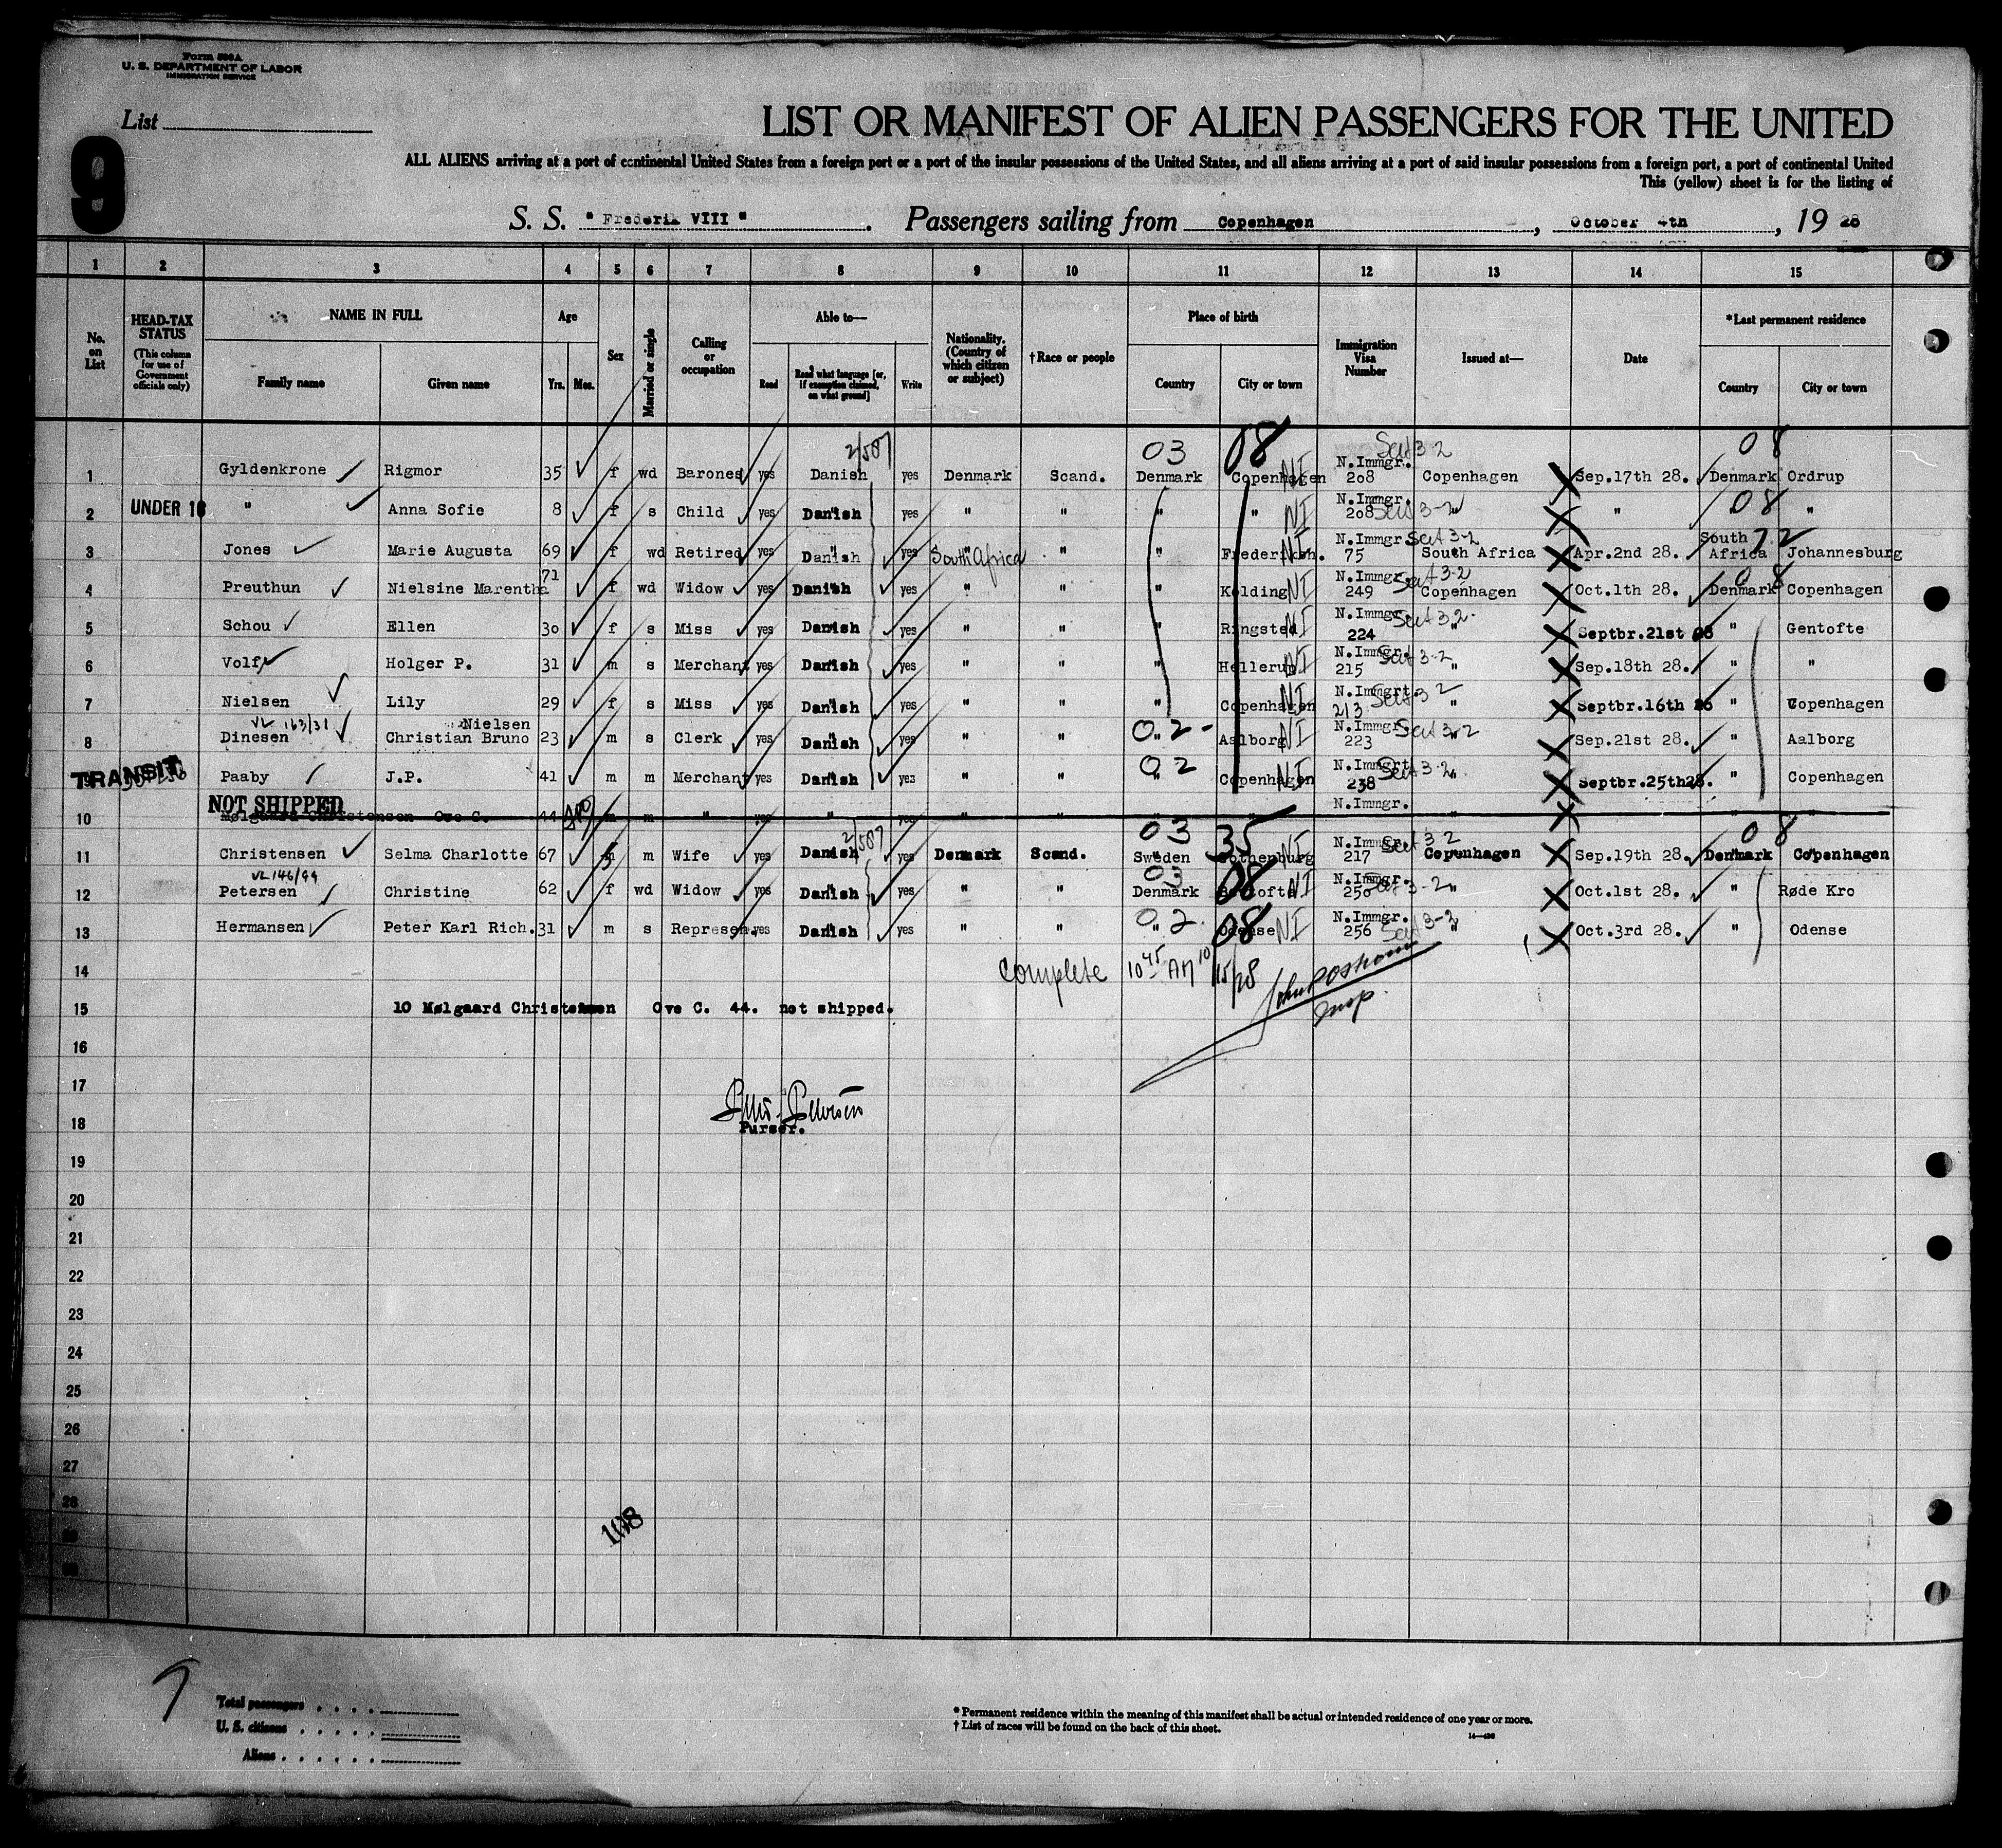 Form 500A
U. S. DEPARTMENT OF LABOR
IMMIGRATION SERVICE
List
9
LIST OR MANIFEST OF ALIEN PASSENGERS FOR THE UNITED
ALL ALIENS arriving at a port of continental United States from a foreign port or a port of the insular possessions of the United States, and all aliens arriving at a port of said insular possessions from a foreign port, a port of continental United
This (yellow) sheet is for the listing of
S. S. "Frederik VIII". Passengers sailing from Copenhagen, October 4th, 1928
1 2 3 4 5 6 7 8 9 10 11 12 13 14 15
No. on List
HEAD-TAX STATUS (This column for use of Government officials only)
NAME IN FULL Family name Given name
Age Yrs. Mos.
Sex
Married or single
Calling or occupation
Able to— Read Read what language [or, if exemption claimed, on what ground] Write
Nationality. (Country of which citizen or subject)
†Race or people
Place of birth Country City or town
Immigration Visa Number
Issued at—
Date
*Last permanent residence Country City or town
2/587 03 08 Sect 3-2 08
1 Gyldenkrone Rigmor 35 f wd Barones yes Danish yes Denmark Scand. Denmark Copenhagen NI N.Immgr. 208 Copenhagen Sep.17th 28. Denmark Ordrup
2 UNDER 16 " Anna Sofie 8 f s Child yes Danish yes " " " " NI N.Immgr. 208 Sect 3-2 " " 08 "
3 Jones Marie Augusta 69 f wd Retired yes Danish yes South Africa " " Frederiksh. NI N.Immgr. 75 Sect 3-2 South Africa Apr.2nd 28. South Africa 72 Johannesburg
4 Preuthun Nielsine Marentha 71 f wd Widow yes Danish yes " " " Kolding NI N.Immgr. 249 Sect 3-2 Copenhagen Oct.1th 28. 08 Denmark Copenhagen
5 Schou Ellen 30 f s Miss yes Danish yes " " " Ringsted NI N.Immgr. 224 Sect 3-2 " Septbr.21st 28 " Gentofte
6 Volf Holger P. 31 m s Merchant yes Danish yes " " " Hellerup NI N.Immgr. 215 Sect 3-2 " Sep.18th 28. " "
7 Nielsen Lily 29 f s Miss yes Danish yes " " " Copenhagen NI N.Immgrt. 213 Sect 3-2 " Septbr.16th 28 " Copenhagen
VL 163/31 Nielsen
8 Dinesen Christian Bruno 23 m s Clerk yes Danish yes " " 02 - " Aalborg NI N.Immgr. 223 Sect 3-2 " Sep.21st 28. " Aalborg
TRANSIT Paaby J.P. 41 m m Merchant yes Danish yes " " 02 " Copenhagen NI N.Immgrt. 238 Sect 3-2 " Septbr.25th28. " Copenhagen
NOT SHIPPED
10 Mølgaard Christensen Ove C. 44 m m " yes " yes " " " " N.Immgr. " " " "
2/587 03 35 08
11 Christensen Selma Charlotte 67 m Wife yes Danish yes Denmark Scand. Sweden Gothenburg NI N.Immgr. 217 Sect 3-2 Copenhagen Sep.19th 28. Denmark Copenhagen
VL 146/99 03 08
12 Petersen Christine 62 f wd Widow yes Danish yes " " Denmark NI N.Immgr. 250 Sect 3-2 " Oct.1st 28. " Røde Kro
13 Hermansen Peter Karl Rich. 31 m s Represen. yes Danish yes " " 02 " 08 Odense NI N.Immgr. 256 Sect 3-2 " Oct.3rd 28. " Odense
14 Complete 10 45 AM 10/15/28
15 10 Mølgaard Christensen Ove C. 44. not shipped.
Insp.
16
17
18 Purser.
19
20
21
22
23
24
25
26
27
28
29
30
108
Total passengers
U. S. citizens
Aliens
* Permanent residence within the meaning of this manifest shall be actual or intended residence of one year or more.
† List of races will be found on the back of this sheet.